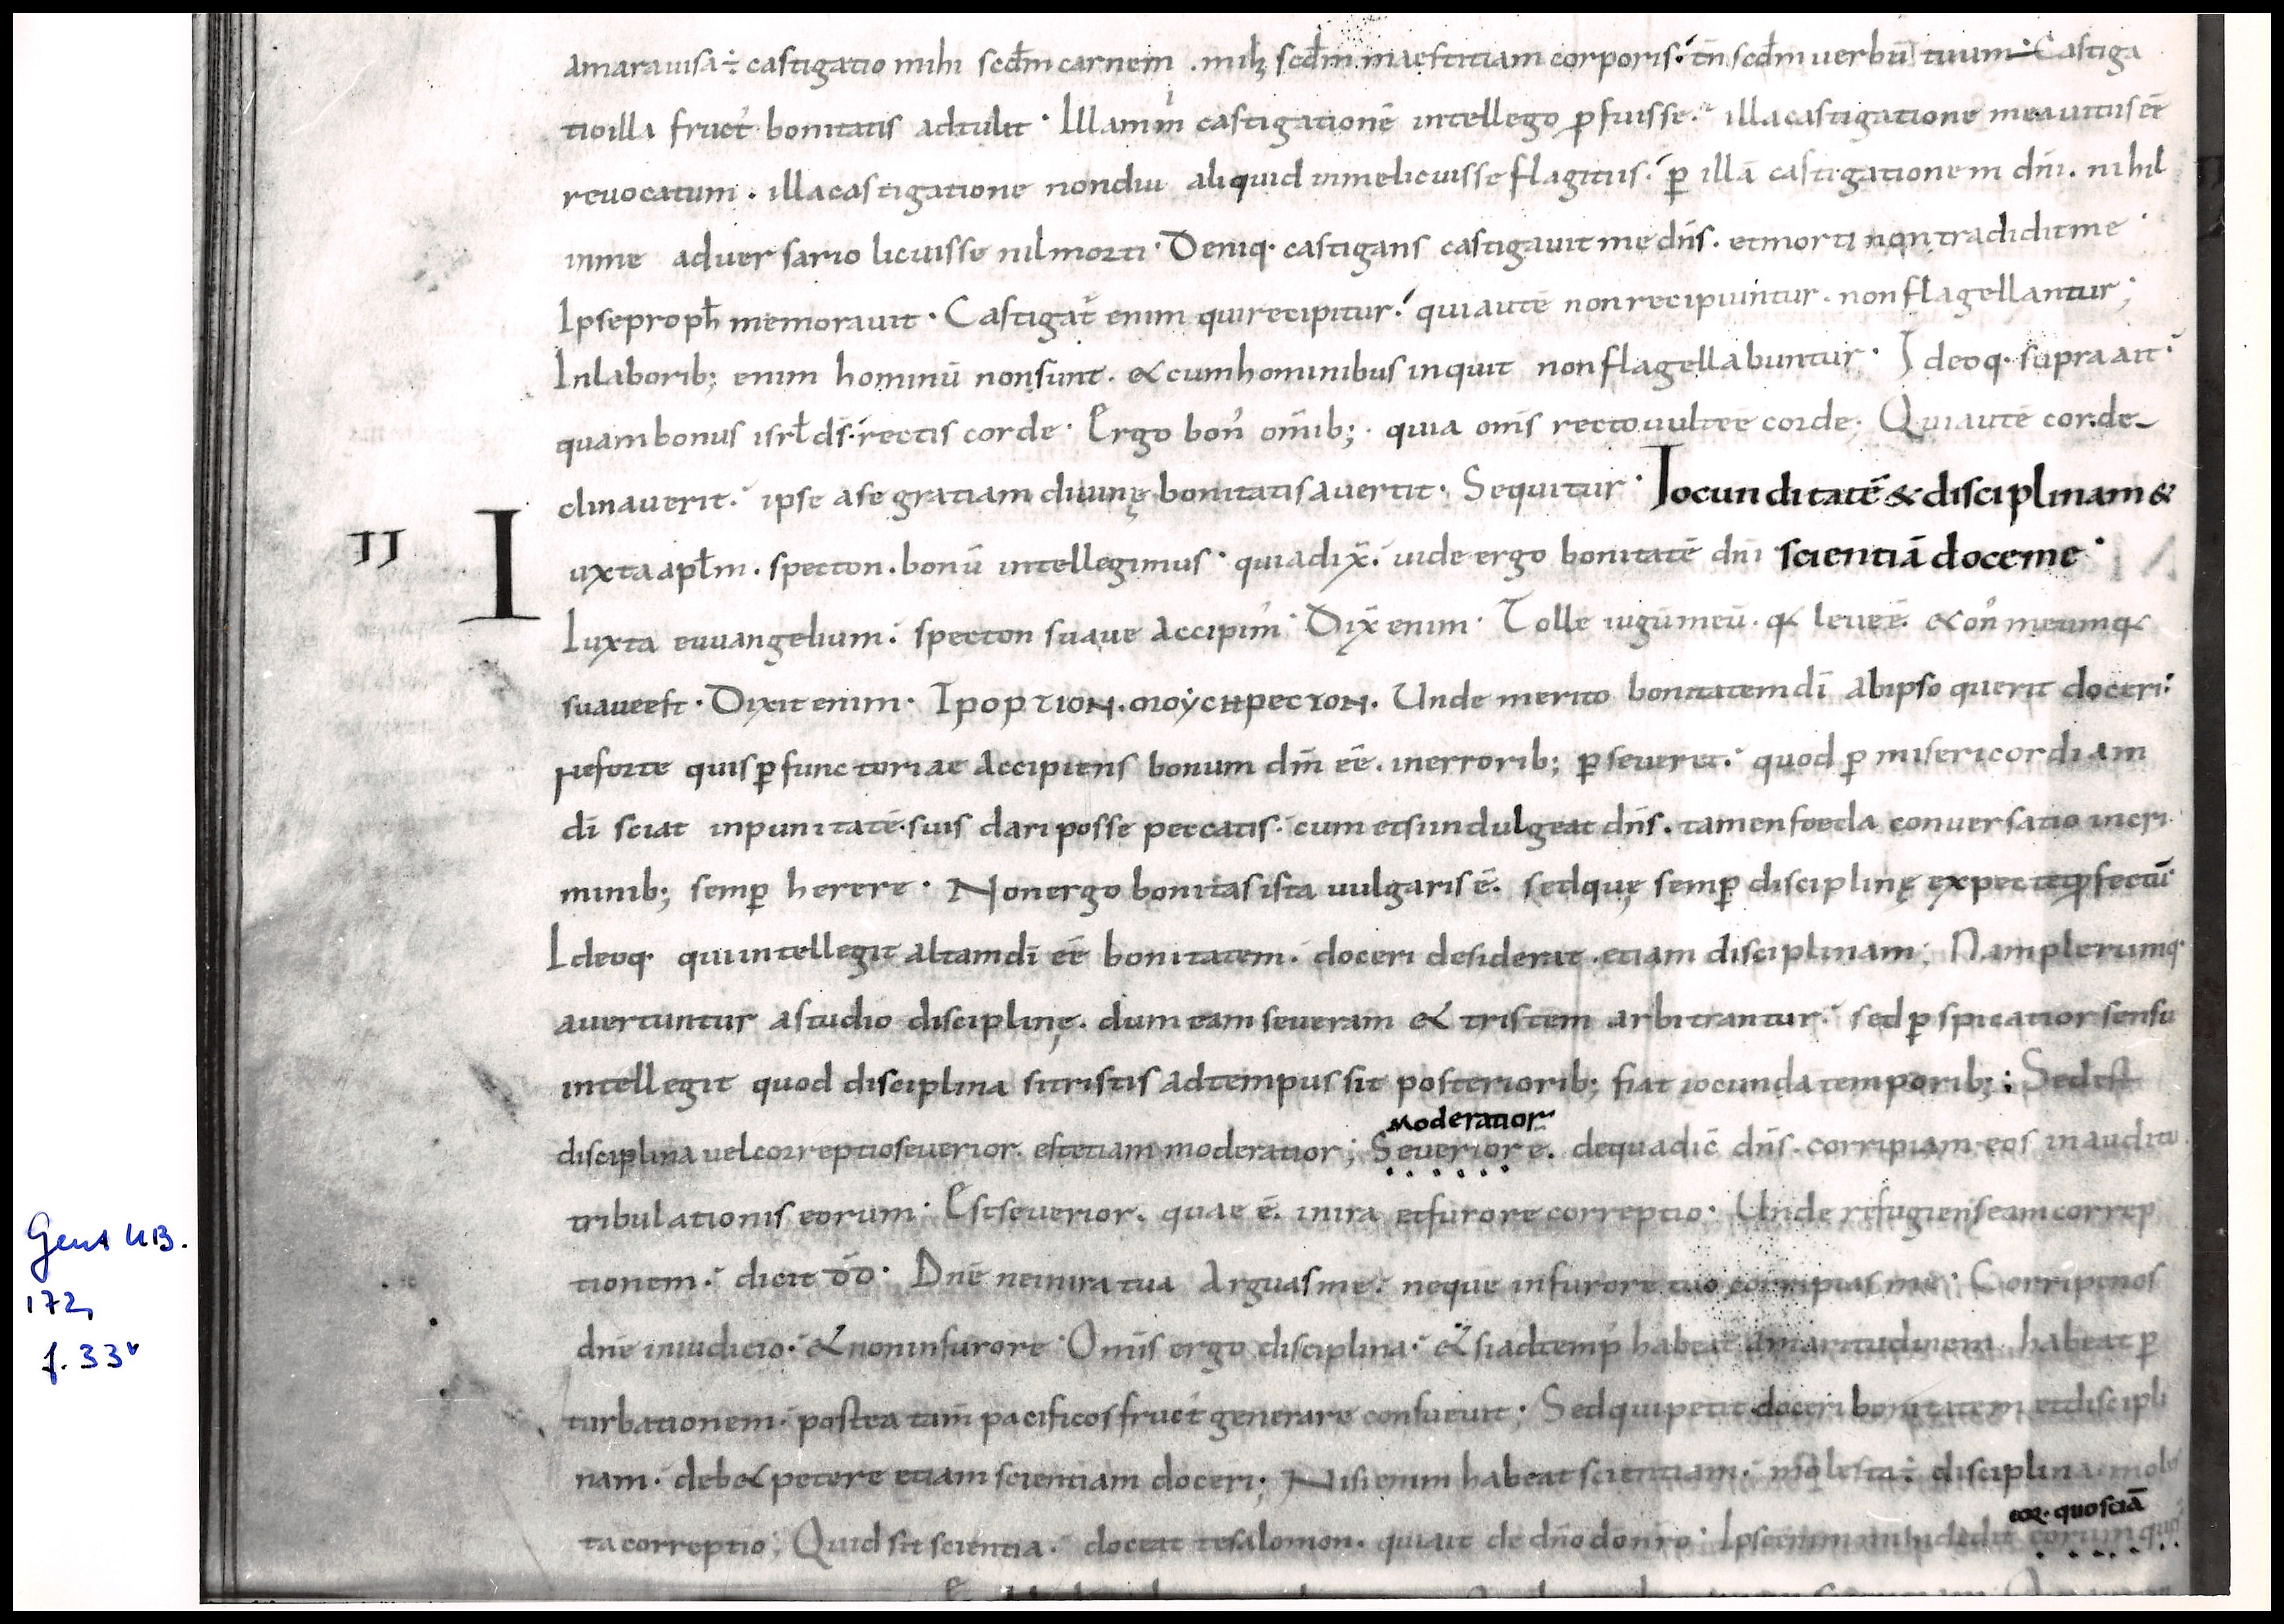 amarauisa÷ castigatio mihi scdm carnem . mihi scdm maestitiam corporis. tn scdm uerbū tuum. Castiga
tio illa fruct' bonitatis adtulit. Illam m' castigationē intellego ꝑfuisse. illa castigatione mea uirtus ēē
reuocatum. illa castigatione non diu aliquid in me licuisse flagitiis. ꝑ illā castigationem dnī. nihil
in me aduersario licuisse nil morti. Deniq. castigans castigauit me dns. et morti non tradidit me
Ipse proph memorauit. Castigat enim qui recipitur. qui autē non recipiuntur. non flagellantur;
In laborib; enim hominū non sunt. & cum hominibus inquit non flagellabuntur. Ideoq. supra ait.
quam bonus isrl ds. rectis corde. Ergo bon' omib;. quia omīs recto uult ēē corde; Qui autē cor de
clinauerit. ipse a se gratiam diuinę bonitatis auertit. Sequitur. Iocunditatē & disciplinam &
II Iuxta aplm. specton. bonū intellegimus. quia dix. uide ergo bonitatē dnī scientiā doce me.
Iuxta euuangelium. specton suaue accipim'. Dix enim. Tolle iugū meū. q& leue ē. & on' meum q&
suaue est. Dixit enim. Ipoρτιοn. moycнρεcτοn. Unde merito bonitatem dī ab ipso querit doceri.
Ne forte quis ꝑfunctoriae accipiens bonum dm ēē. in errorib; ꝑseueret. quod ꝑ misericordiam
dī sciat inpunitatē suis dari posse peccatis. cum etsi indulgeat dns. tamen foeda conuersatio in cri
minib; semꝑ herere. Non ergo bonitas ista uulgaris ē. sed quę semꝑ disciplinę expectet ꝓfectū
Ideoq. qui intellegit altam dī ēē bonitatem. doceri desiderat. etiam disciplinam; Nam plerumq.
auertuntur a studio disciplinę. dum eam seueram & tristem arbitrantur. sed ꝑspicatior sensu
intellegit quod disciplina si tristis ad tempus sit posteriorib; fiat iocunda temporib;; Sed est
Moderatior
disciplina uel correptio seuerior. est etiam moderatior; Seuerior ē. de qua dic dns. corripiam eos in auditu
tribulationis eorum. Est seuerior. quae ē. in ira et furore correptio. Unde refugiens eam correp
tionem. dicit dd. Dnē ne in ira tua arguas me. neque in furore tuo corripias me. Corripe nos
dnē in iudicio. & non in furore. Omīs ergo disciplina. & si ad temp' habeat amaritudinem. habeat ꝑ
turbationem. postea tam pacificos fruct' generare consueuit; Sed qui petit doceri bonitatem et discipli
nam. deb& petere etiam scientiam doceri; Nisi enim habeat scientiam. molesta÷ disciplina. moles
eoꝝ. quo sciā
ta correptio; Quid sit scientia. doceat te salomon. qui ait de dno donro. Ipse enim mihi dedit eorum
Gent UB.
172,
f. 33v